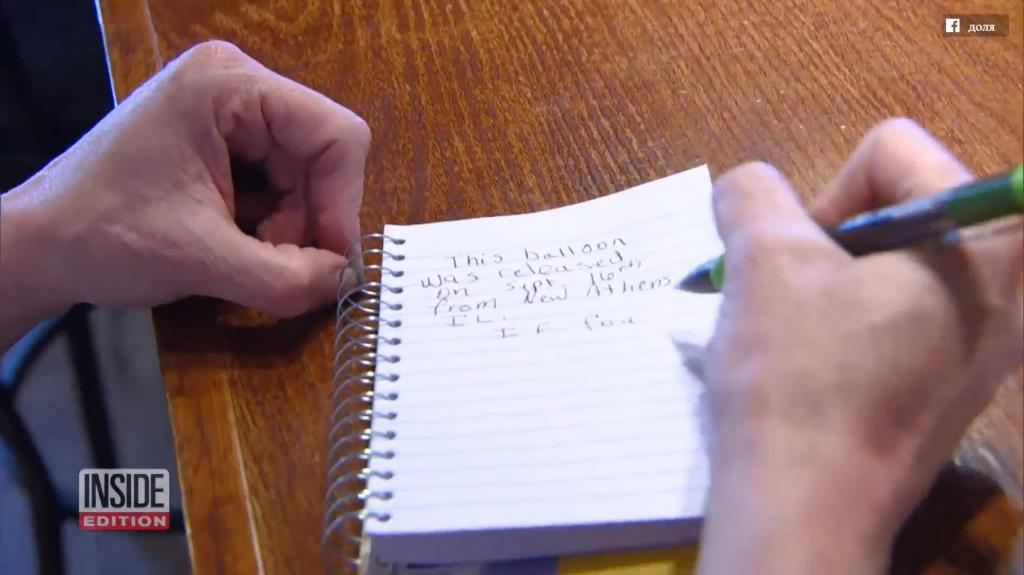 доля
This balloon
was released
on Sept. 16th
from New Athens
IL.
IF You
INSIDE
EDITION